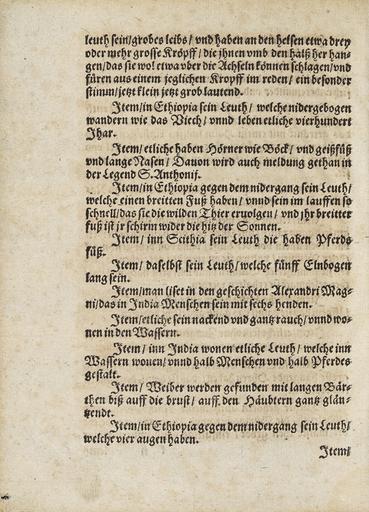 leuth sein/grobes leibs/ vnd haben an den helsen etwa drey
oder mehr grosse Kröpff/ die jhnen vmb den hälß her han-
gen/das sie wol etwa vber die Achseln können schlagen/vnd
füren aus einem jeglichen Kropff im reden/ ein besonder
stimm/jetzt klein jetzt grob lautend.
Item/in Ethiopia sein Leuth/ welche nidergebogen
wandern wie das Viech/ vnnd leben etliche vierhundert
Jhar.
Item/ etliche haben Hörner wie Böck/ vnd geißfüß
vnd lange Nasen/ Dauon wird auch meldung gethan in
der Legend S. Anthonij.
Item/in Ethiopia gegen dem nidergang sein Leuth/
welche einen breitten Fuß haben/ vnnd sein im lauffen so
schnell/das sie die wilden Thier eruolgen/ vnd jhr breitter
fuß ist jr schirm wider die hitz der Sonnen.
Item/ inn Scithia sein Leuth die haben Pferds
füß.
Item/ daselbst sein Leuth/welche fünff Elnbogen
lang sein.
Item/man liset in den geschichten Alexandri Mag-
ni/das in India Menschen sein mit sechs henden.
Item/etliche sein nackend vnd gantz rauch/vnnd wo-
nen in den Wassern.
Item/ inn India wonen etliche Leuth/ welche inn
Wassern wonen/ vnnd halb Menschen vnd halb Pferdes
gestalt.
Item/ Weiber werden gefunden mit langen Bär-
then biß auff die brust/ auff den Häubtern gantz glän-
tzendt.
Item/in Ethiopia gegen dem nidergang sein Leuth/
welche vier augen haben.
Item/